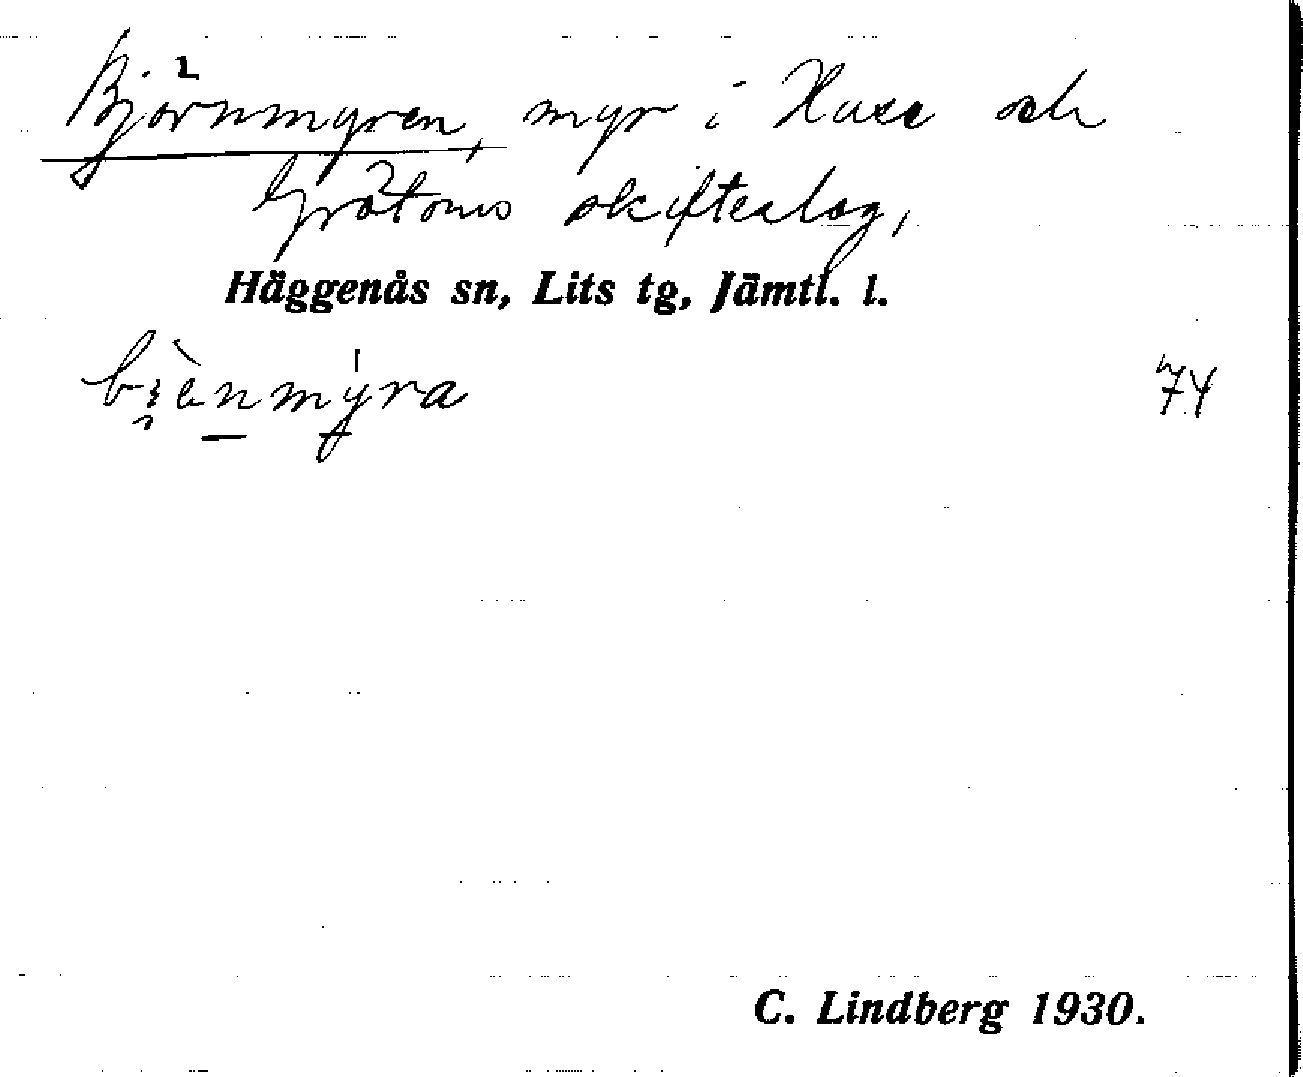 Björnmyren, myr i Huse och
Gråtonis skifteslag,
Häggenås sn, Lits tg, Jämtl. l.
bi̯ènmýra
74
C. Lindberg 1930.